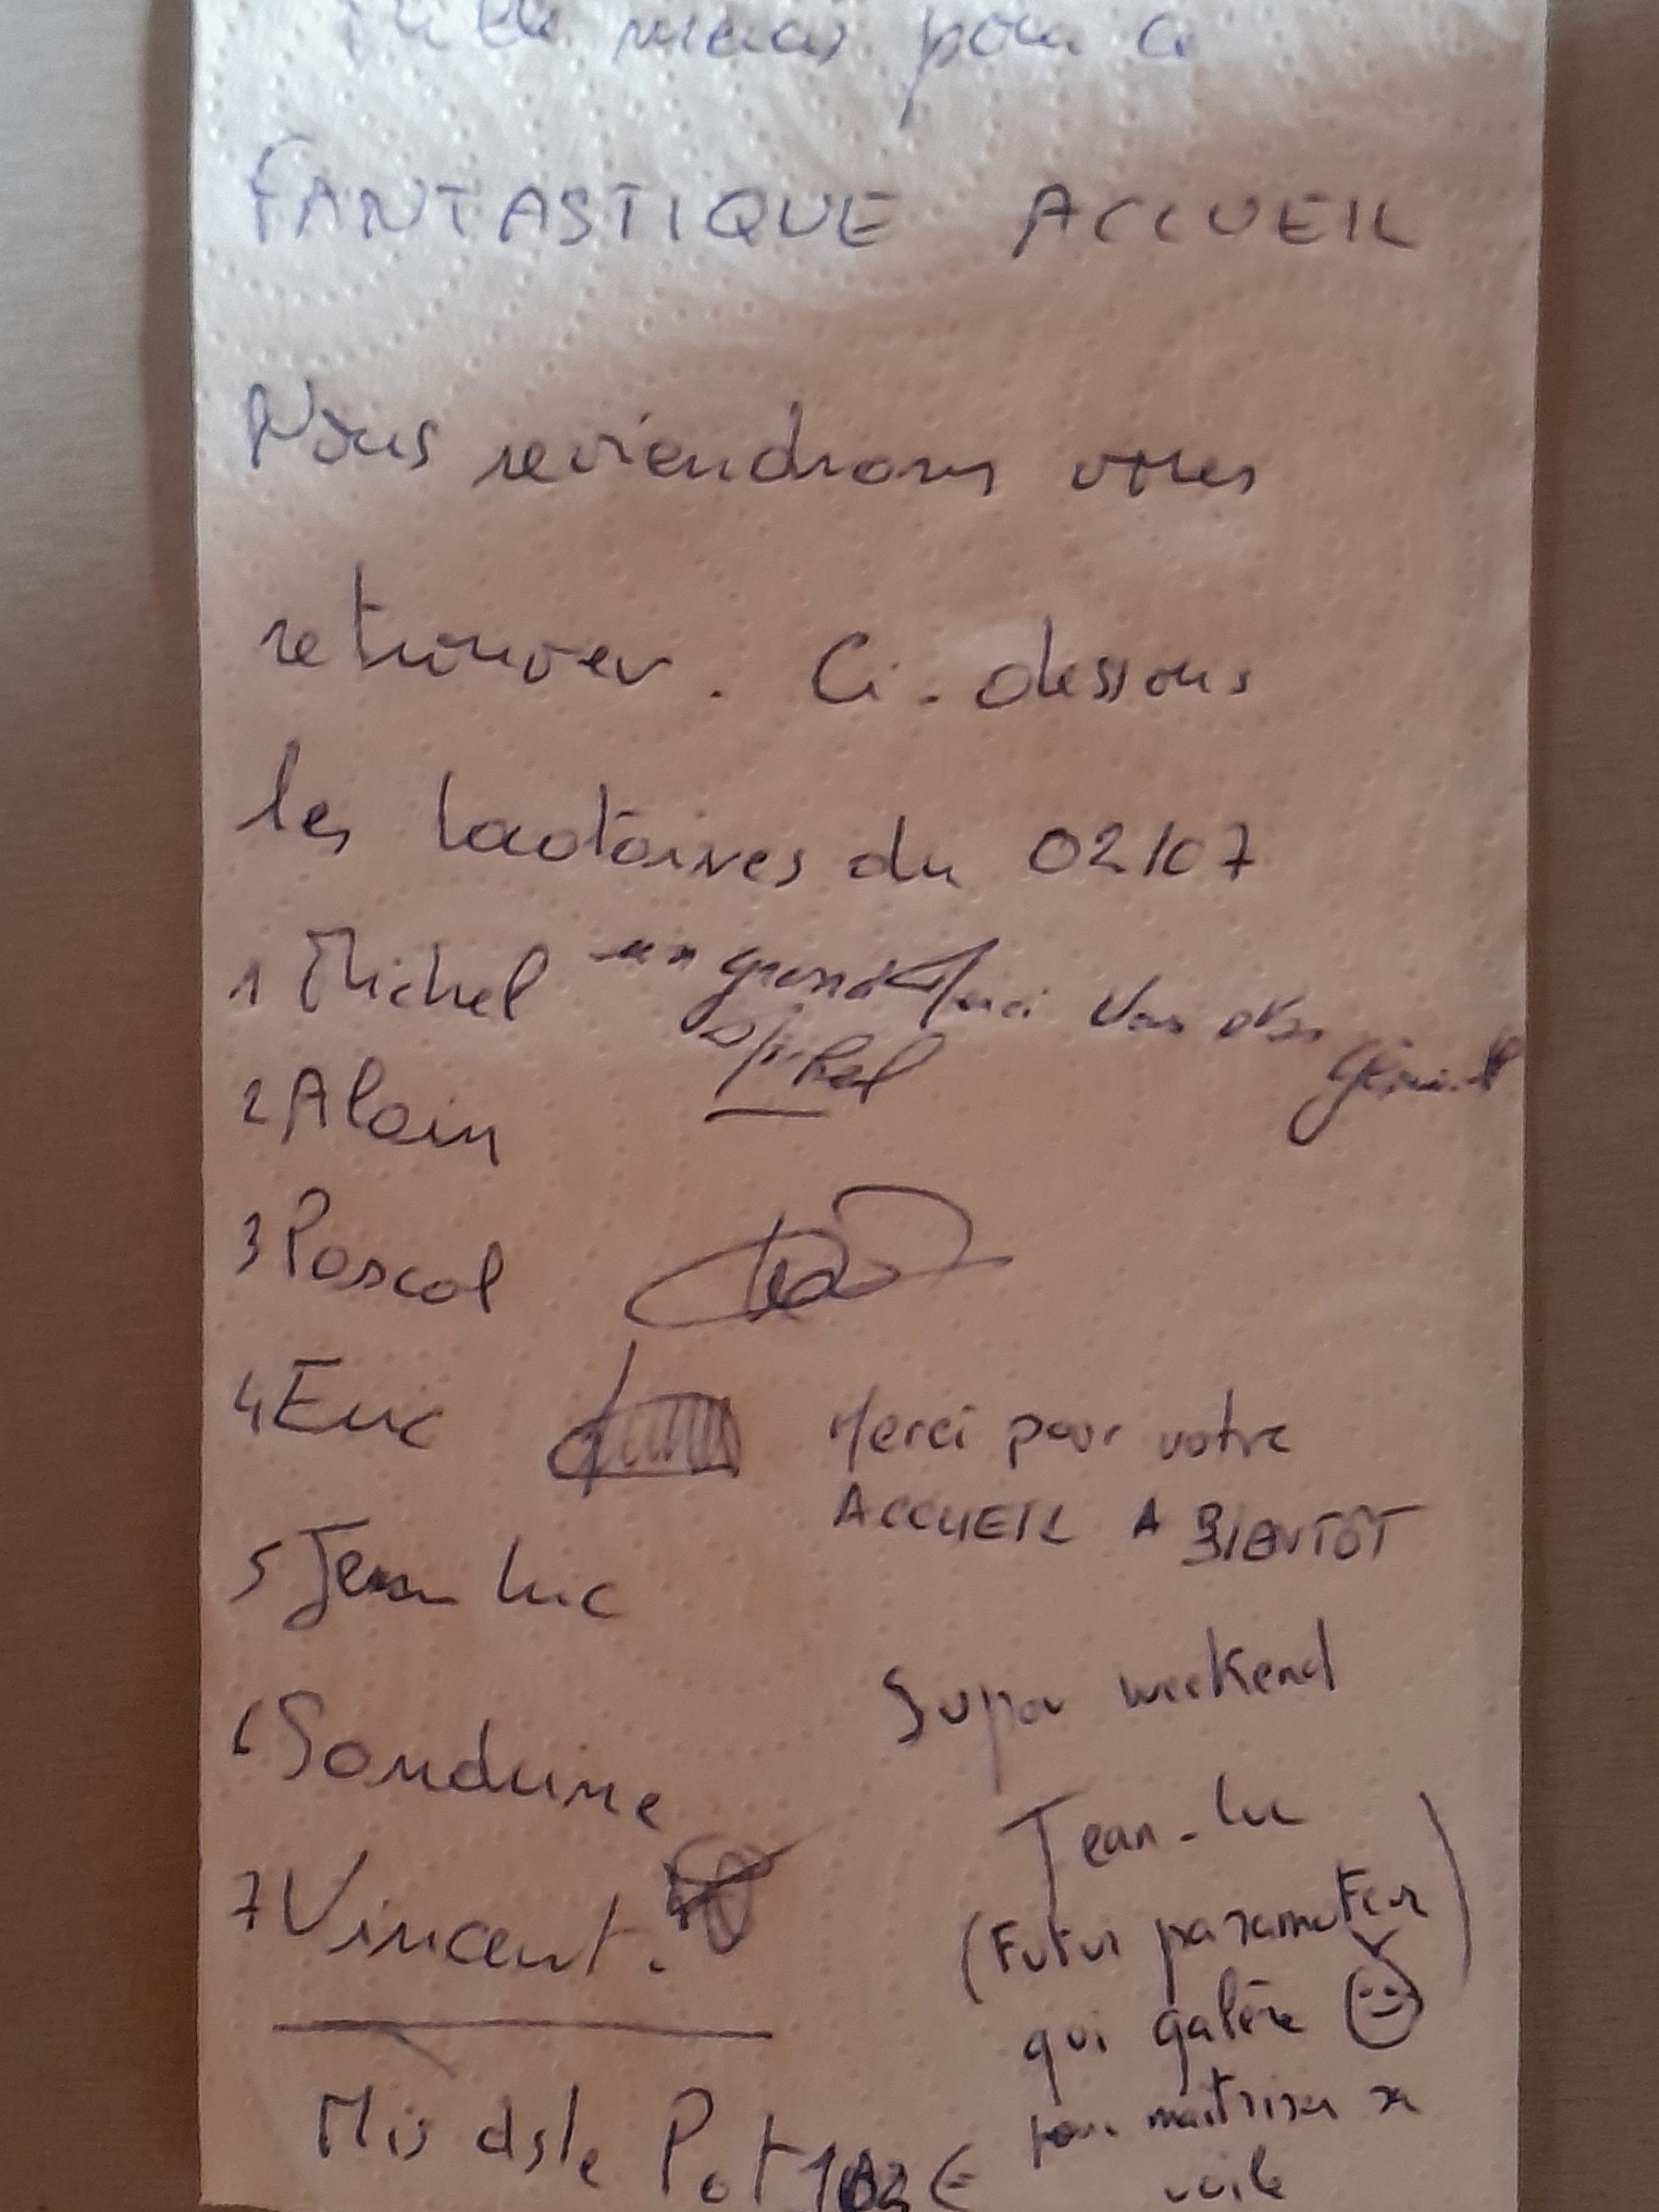 Mille mercis pour ce
FANTASTIQUE ACCUEIL
Nous reviendrons vous
retrouver. Ci-dessous
les locataires du 02/07
1 Michel un grand Merci Vous êtes
génial
2 Alain
3 Pascal
4 Eric Merci pour votre
ACCUEIL A BIENTÔT
5 Jean Luc
Super weekend
6 Sandrine
Jean-Luc
7 Vincent.
(Futur paramoteur
qui galère
pour maitriser sa
voile
)
Mis ds le Pot €